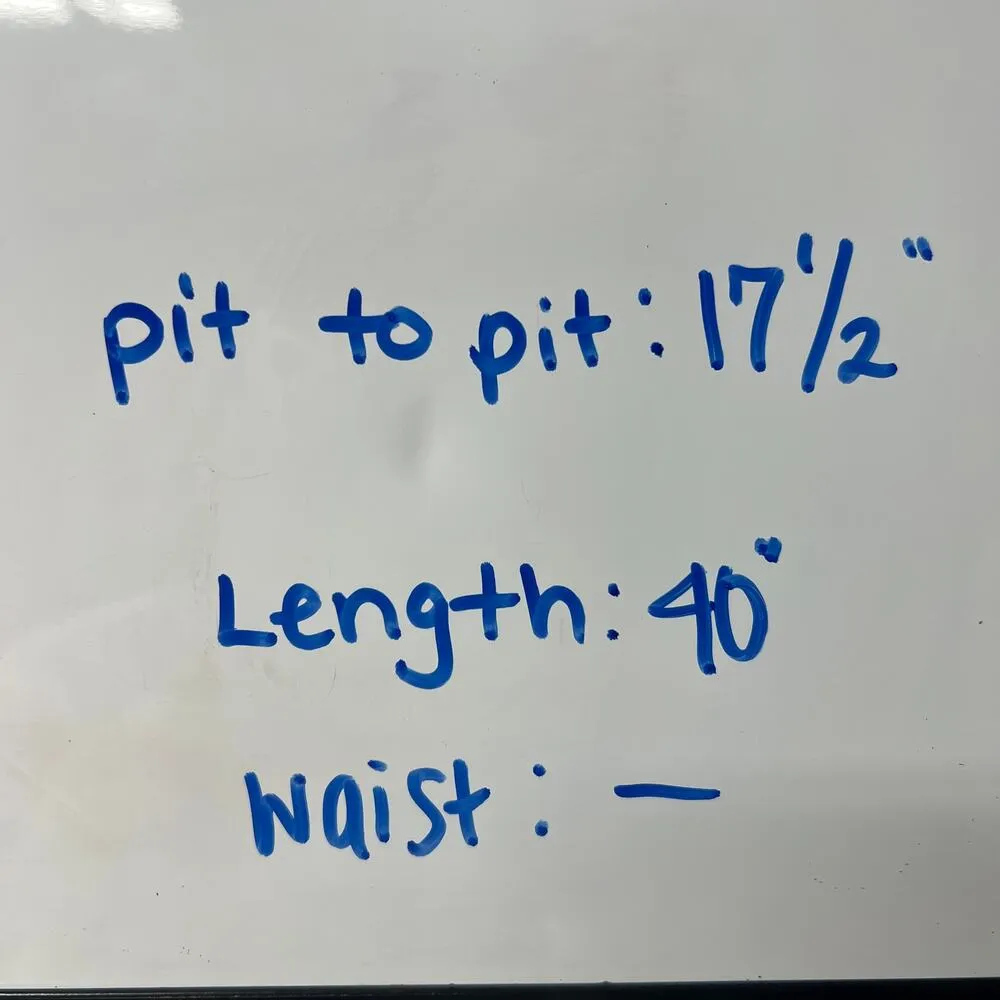 pit to pit: 17 1/2"
Length: 40"
Waist: —